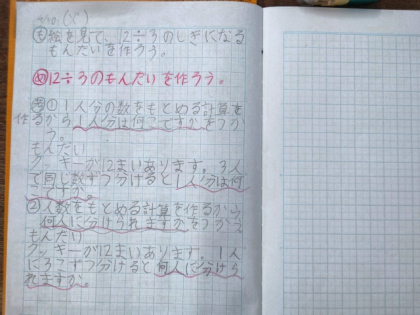 4/10 (火)
も 絵を見て、12÷3のしきになる
もんだいを作ろう。
め 12÷3のもんだいを作ろう。
考 ① 1人分の数をもとめる計算を
作るから1人分は何こですかをつか
う。
もんだい
クッキーが12まいあります。3人
で同じ数ずつ分けると1人分は何
こですか。
② 人数をもとめる計算を作るから
何人に分けられますかをつかう
もんだい
クッキーが12まいあります。1人
に3こずつ分けると何人に分けら
れますか。